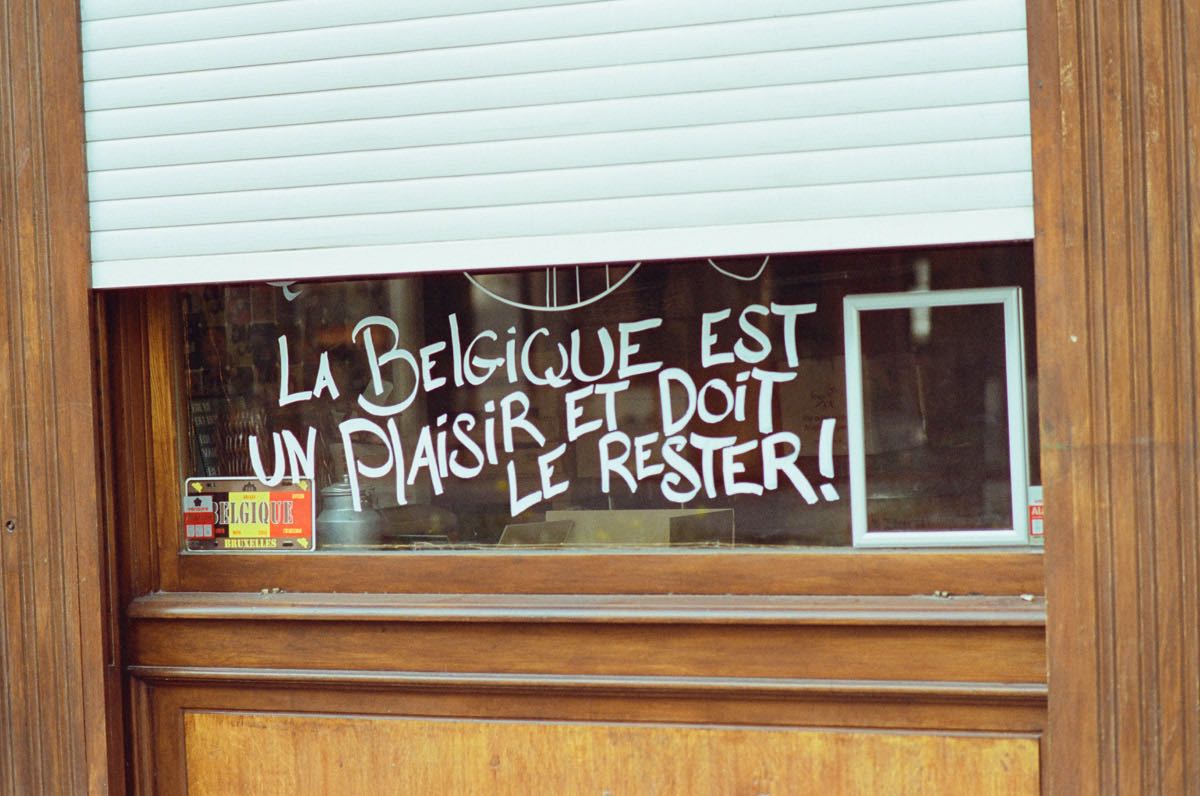 La BelGiQUE EST
UN PlAiSiR ET DoiT
LE RESTER!
BELGIQUE
BRUXELLES